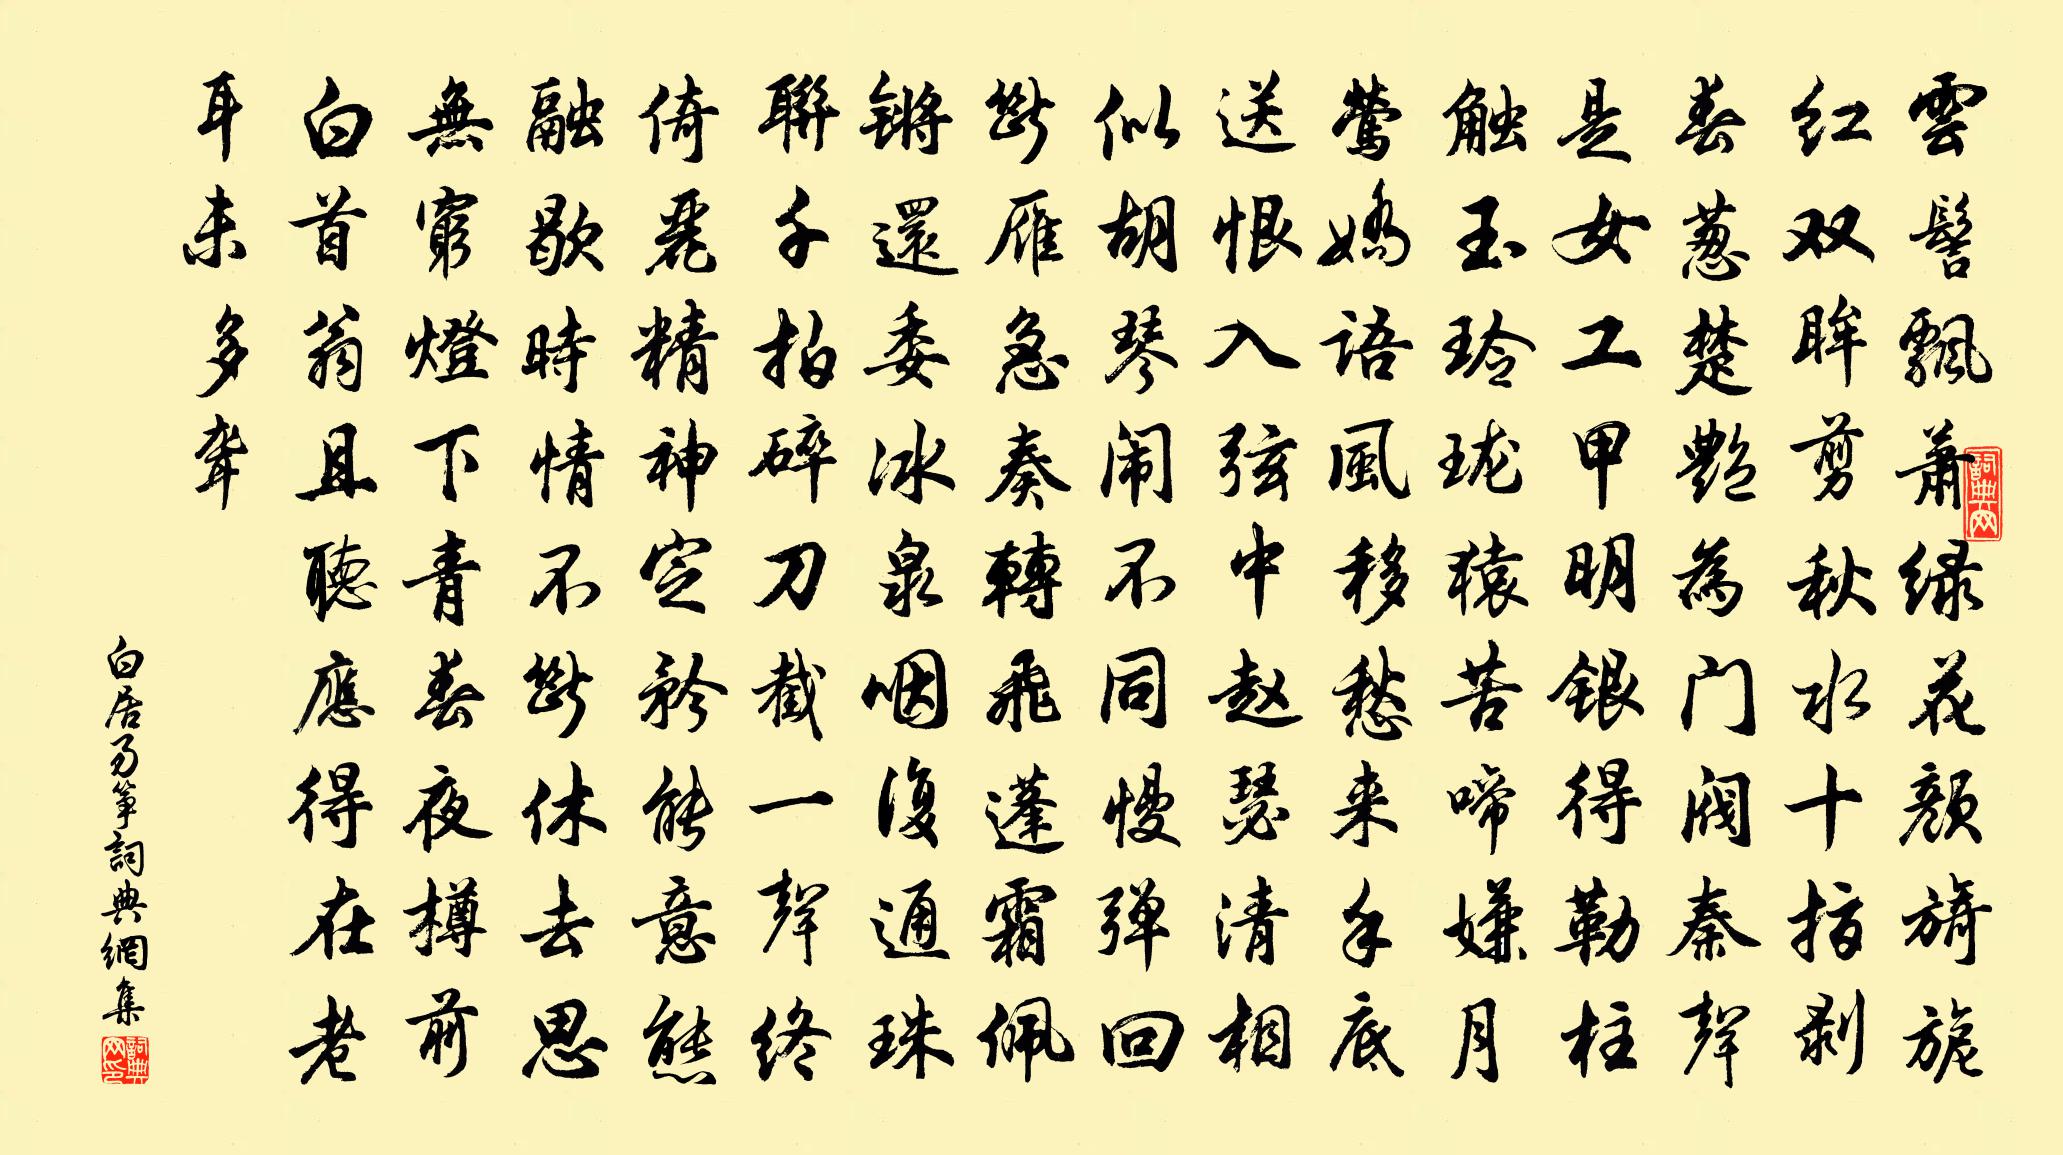 雲髻飄蕭緑花顏旖旎
红双眸剪秋水十指剥
春葱楚艷為门阀秦聲
是女工甲明銀得勒柱
触玉玲珑猿苦啼嫌月
鶯嬌語風移愁来手底
送恨入弦中赵瑟清相
似胡琴闹不同慢弹回
斷雁急奏轉飛蓬霜佩
锵還委冰泉咽復通珠
聯千拍碎刀截一聲终
倚麗精神定矜能意態
融歇時情不斷休去思
無窮燈下青春夜樽前
白首翁且聽應得在老
耳未多聋
白居易筝詞典網集
詞典网
詞典网印